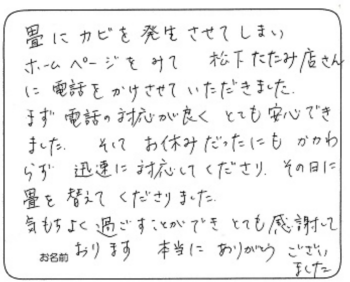 畳にカビを発生させてしまい
ホームページをみて 松下たたみ店さん
に電話をかけさせていただきました.
まず電話の対応が良くとても安心でき
ました. そして お休みだったにもかかわ
らず 迅速に対応してくださり. その日に
畳を替えてくださりました.
気もちよく過ごすことができとても感謝して
おります 本当に ありがとう ござい
ました
お名前